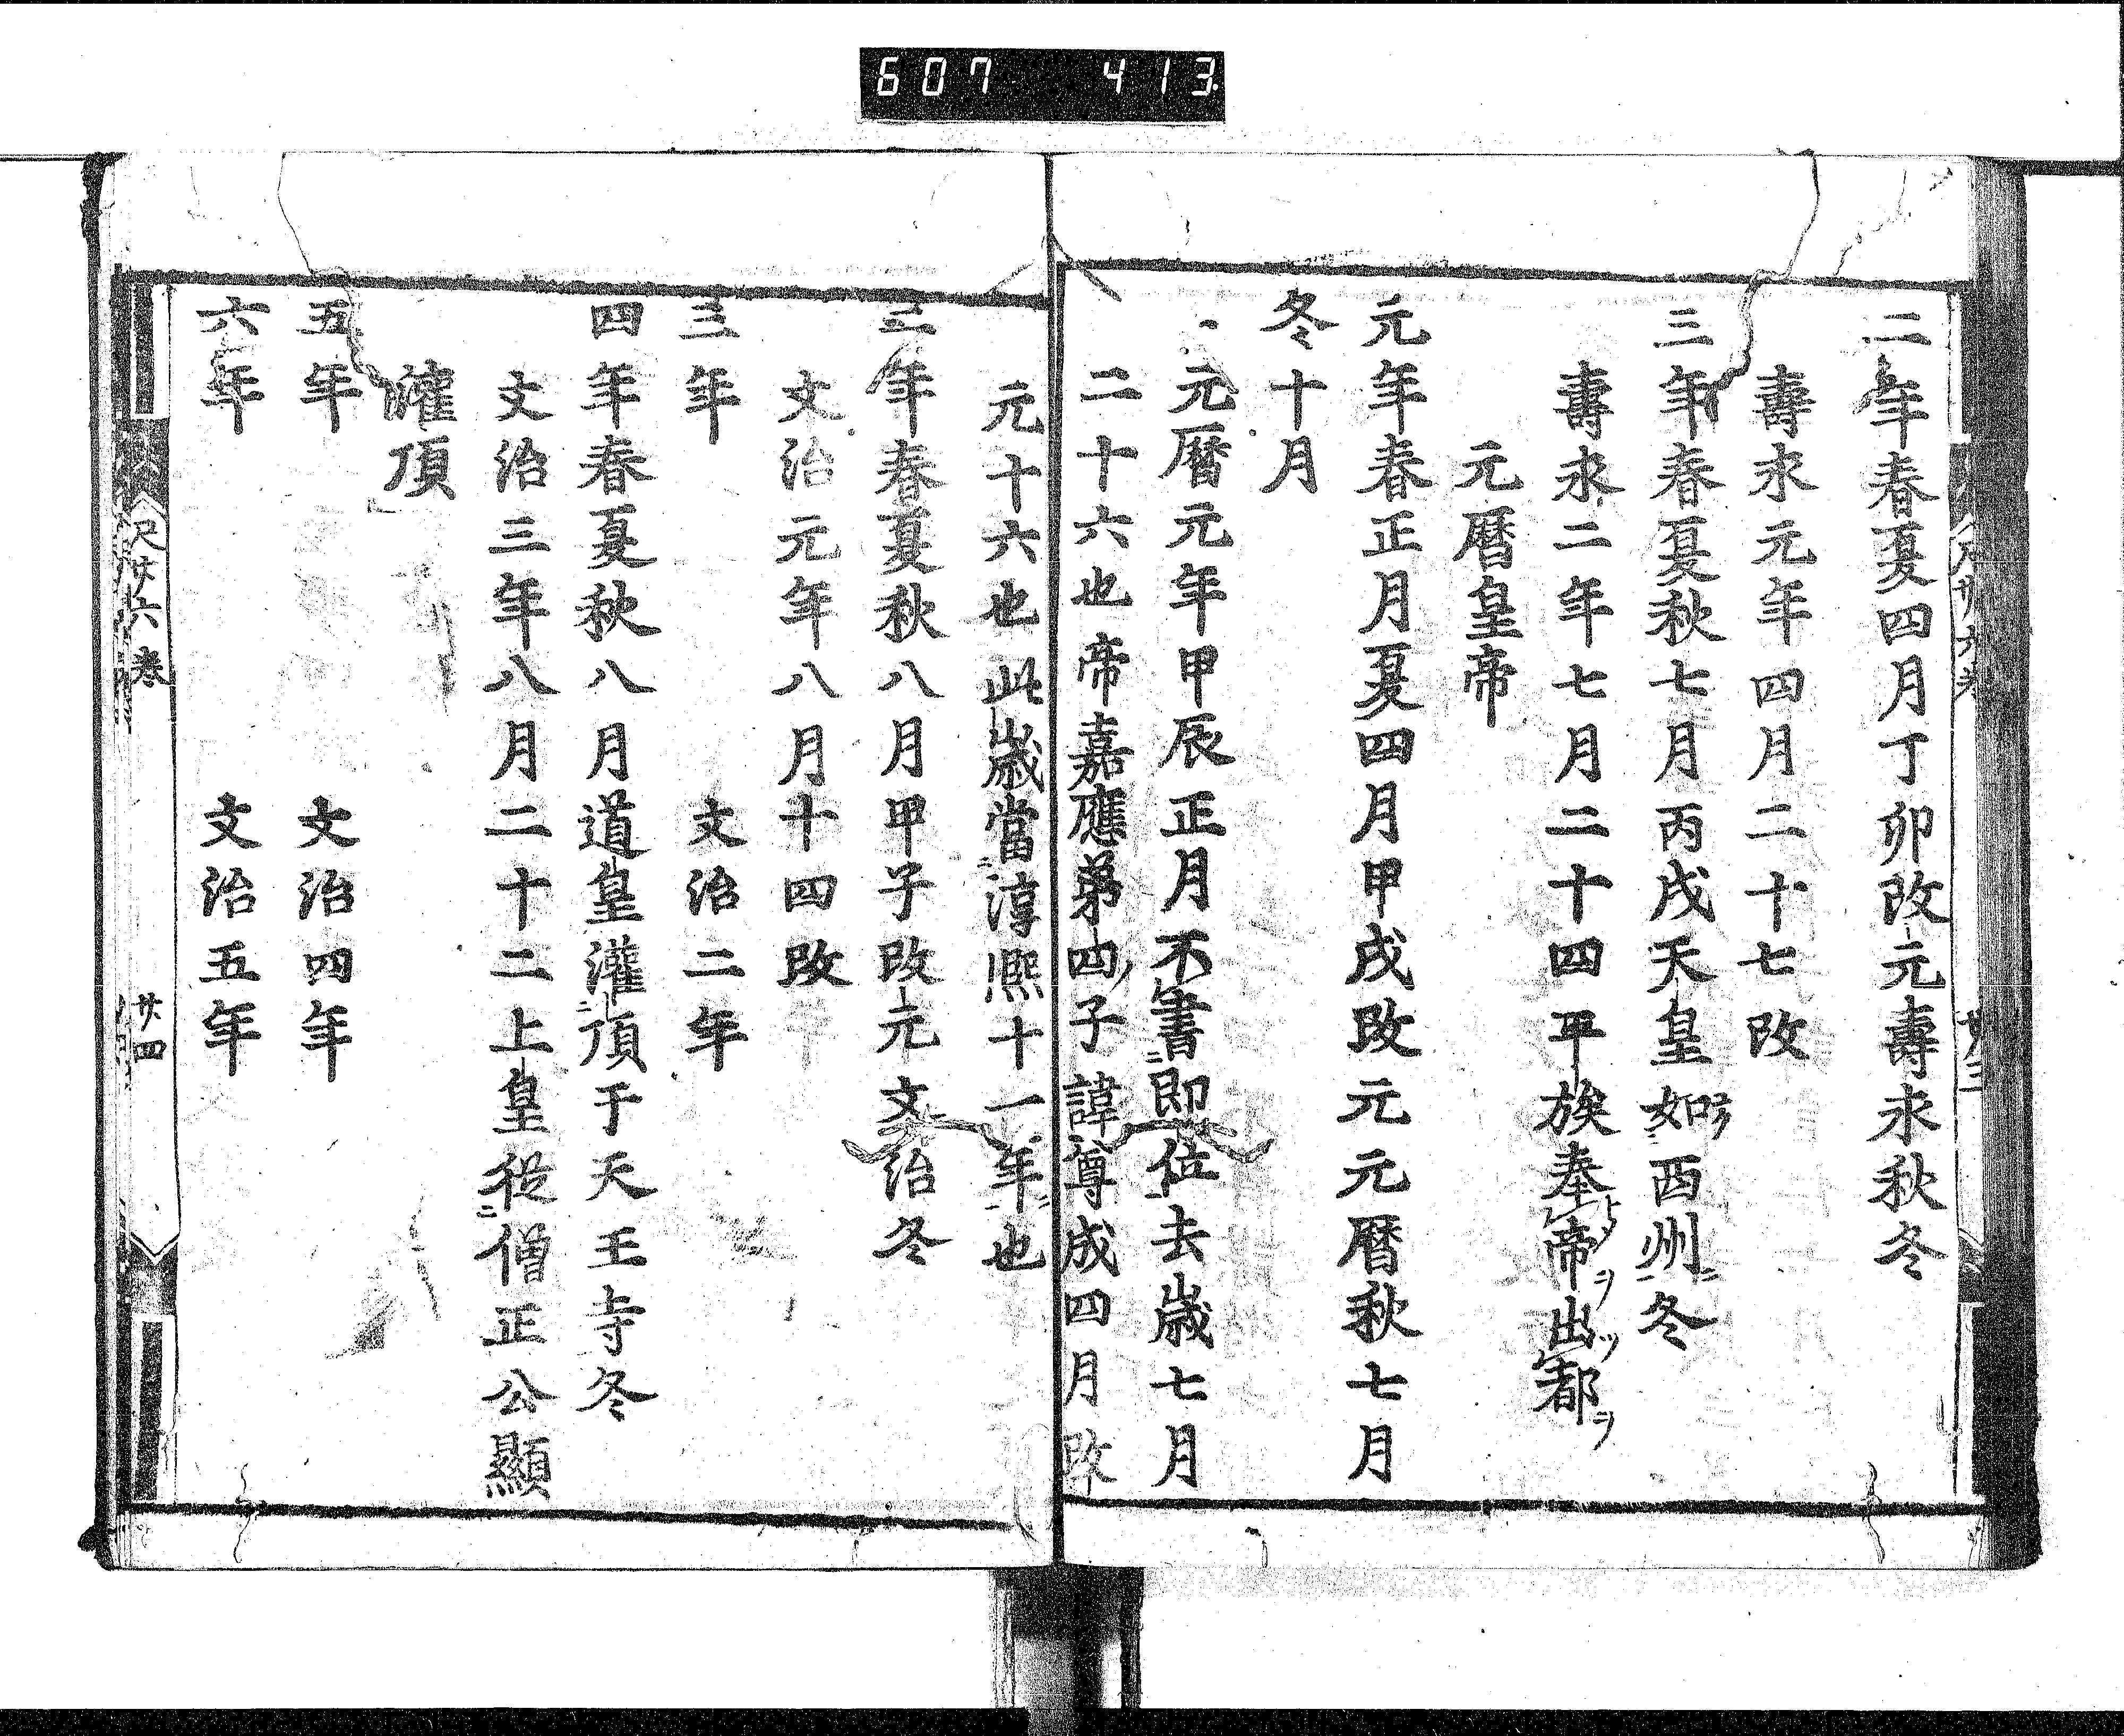 607 413
二年春夏四月丁卯改元壽永秋冬
壽永元年四月二十七改
三年春夏秋七月丙戌天皇如西州冬
壽永二年七月二十四平族奉帝出都
元曆皇帝
元年春正月夏四月甲戌改元元曆秋七月
冬十月
元曆元年甲辰正月不書即位去歲七月
二十六也帝嘉應第四子諱尊成四月改
元十六也此歲當淳熈十一年也
二年春夏秋八月甲子改元文治冬
文治元年八月十四改
三年
文治二年
四年春夏秋八月道皇灌頂于天王寺冬
文治三年八月二十二上皇從僧正公顯
灌頂
五年
文治四年
六年
文治五年
尺廿六巻
廿四